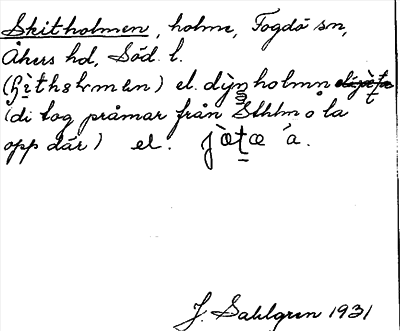 Skitholmen, holme, Fogdö sn,
Åkers hd, Söd. l.
holmen) el. dyn holmn
(di tog pråmar från Sthlm o la
opp där) el.
J. Sahlgren 1931